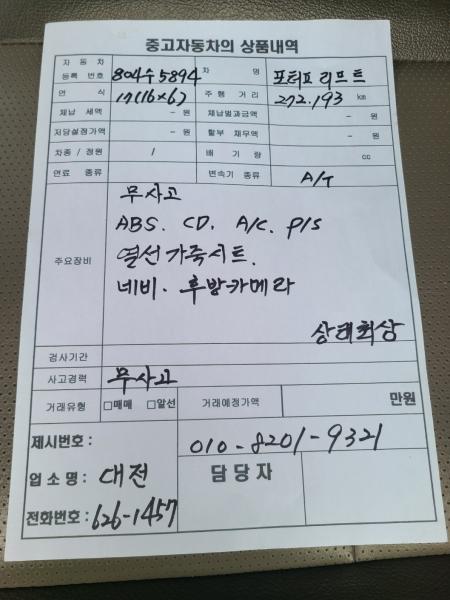 중고자동차의 상품내역
자 동 차 등록 번호 804수5894 차 명 포터II 리프트
연 식 17(16×6) 주 행 거 리 272.193 km
체납 세액 - 원 체납벌과금액 - 원
저당설정가액 - 원 할부 채무액 - 원
차종 / 정원 / 배 기 량 cc
연료 종류 변속기 종류 A/T
주요장비
무사고
ABS. CD. A/C. P/S
열선가죽시트.
네비. 후방카메라
상태최상
검사기간
사고경력 무사고
거래유형 □매매 □알선 거래예정가액 만원
제시번호 : 010-8201-9321
업 소 명 : 대전 담 당 자
전화번호 : 626-1457